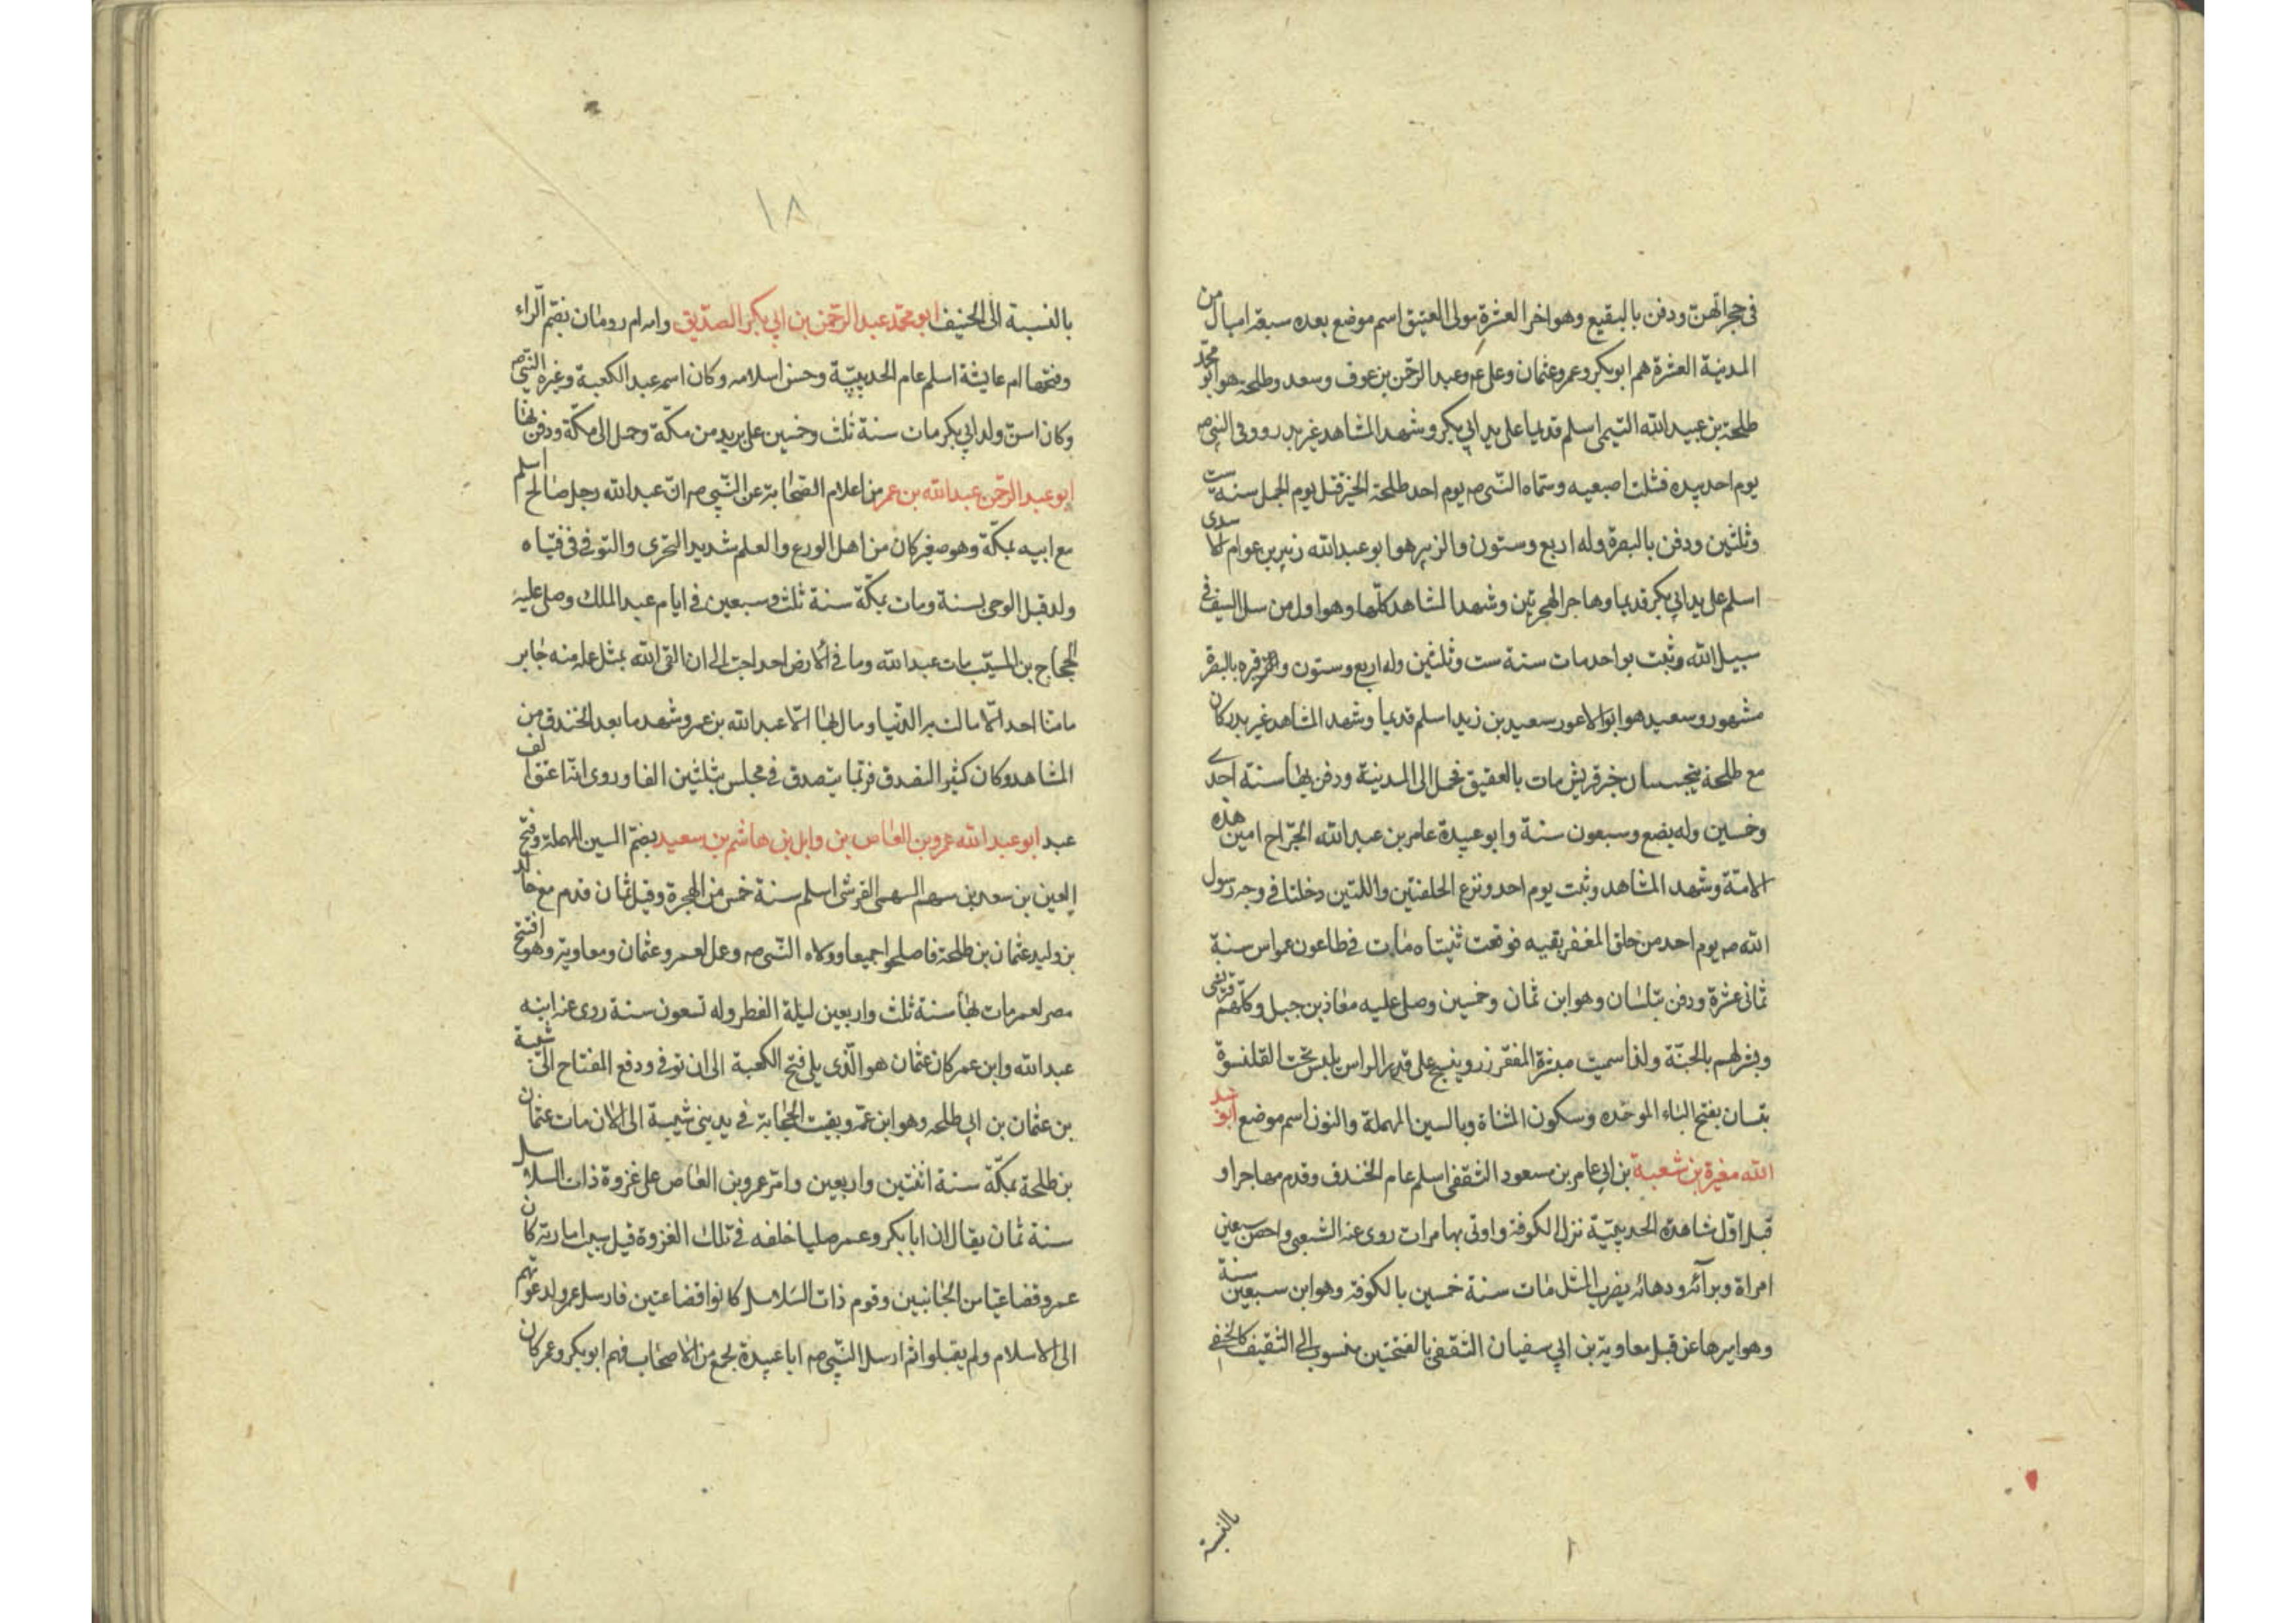 في حجراتهن ودفن بالبقيع وهو اخر العشرة مولى العتيق اسم موضع بعده سبعة اميال من
المدينة العشرة هم ابو بكر وعمر وعثمان وعلي عم وعبد الرحمن بن عوف وسعد وطلحة هو ابو محمد
طلحة بن عبيد الله التيمى اسلم قديما على يد ابي بكر وشهد المشاهد غير بدر ووقى النبي صم
يوم احد بيده فشلت اصبعيه وسماه النبي صم يوم احد طلحة الخير قتل يوم الجمل سنة ست
وثلثين ودفن بالبصرة وله اربع وستون والزبير هو ابو عبد الله زبير بن عوام الاسدى
اسلم على يد ابي بكر قديما وهاجر الهجرتين وشهد المشاهد كلها وهو اول من سل السيف في
سبيل الله وثبت يو احد مات سنة ست وثلثين وله اربع وستون وقبره بالبصرة
مشهور وسعيد هو ابو الاعور سعيد بن زيد اسلم قديما وشهد المشاهد غير بدر كان
مع طلحة يتجسسان خبر قريش مات بالعقيق فحمل الى المدينة ودفن بها سنة احدى
وخمسين وله بضع وسبعون سنة وابو عبيدة عامر بن عبد الله الجراح امين هذه
الامة وشهد المشاهد وثبت يوم احد ونزع الحلقتين واللتين دخلتا في وجه رسول
الله صم يوم احد من حلق المغفر بفيه فوقعت ثنيتاه مات في طاعون عمواس سنة
ثمانى عشرة ودفن بيسان وهو ابن ثمان وخمسين وصلى عليه معاذ بن جبل وكلهم قرشى
وبشر لهم بالجنة ولذا سميت مبشرة المغفر زرد ينسج على قدر الراس يلبس تحت القلنسوة
بيسان بفتح الباء الموحده وسكون المثناة وبالسين المهملة والنون اسم موضع ابو عبد
الله مغيرة بن شعبة بن ابي عامر بن مسعود الثقفى اسلم عام الخندق وقدم مهاجرا و
قبل اول شاهده الحديبية نزل الكوفة واوتى بها مرات روى عنه الشعبى واحصن سبعين
امراة وبرآئه ودهائه يضرب المثل مات سنة خمسين بالكوفة وهو ابن سبعين سنة
وهو اميرها عن قبل معاوية بن ابي سفيان الثقفى بالفتحتين منسوب الى الثقيف كالحنفى
بالنسبة
١٨
بالنسبة الى الحنيف ابو محمد عبد الرحمن بن ابي بكر الصديق وامه ام رومان بضم الراء
وفتحها ام عايشة اسلم عام الحديبية وحسن اسلامه وكان اسمه عبد الكعبة وغيره النبي صم
وكان اسن ولد ابي بكر مات سنة ثلث وخمسين على بريد من مكة وحمل الى مكة ودفن بها
ابو عبد الرحمن عبد الله بن عمر من اعلام الصحابة عن النبي صم ان عبد الله رجل صالح اسلم
مع ابيه بمكة وهو صغير كان من اهل الورع والعلم شديد التحرى والتوقى في فتياه
ولد قبل الوحى بسنة ومات بمكة سنة ثلث وسبعين في ايام عبد الملك وصلى عليه
الحجاج بن المسيب مات عبد الله وما في الارض احد احب الى ان القى الله بمثل عمله منه جابر
ما منا احد الا مالت به الدنيا ومال بها الا عبد الله بن عمر وشهد ما بعد الخندق من
المشاهد وكان كثير التصدق فربما يتصدق في مجلس بثلثين الفا وروى انه اعتق الف
عبد ابو عبد الله عمرو بن العاص بن وايل بن هاشم بن سعيد بضم السين المهملة وفتح
العين بن سعد بن سهم السهمى القرشى اسلم سنة خمس من الهجرة وقيل ثمان قدم مع خالد
بن وليد عثمان بن طلحة فاصلحوا جميعا وولاه النبي صم وعمل لعمر وعثمان ومعاوية وهو افتتح
مصر لعمر مات بها سنة ثلث واربعين ليلة الفطر وله تسعون سنة روى عنه ابنه
عبد الله وابن عمر كان عثمان هو الذى يلى فتح الكعبة الى ان توفى ودفع المفتاح الى شيبة
بن عثمان بن ابي طلحه وهو ابن عمه وبقيت الحجابة في يد بنى شيبة الى الان مات عثمان
بن طلحة بمكة سنة اثنتين واربعين وامر عمرو بن العاص على غزوة ذات السلاسل
سنة ثمان يقال ان ابا بكر وعمر صليا خلفه في تلك الغزوة قيل سبب امارته كان
عمرو قضاعيا من الجانبين وقوم ذات السلاسل كانوا قضاعتين فارسل عمرو لدعوتهم
الى الاسلام ولم يقبلوا ثم ارسل النبي صم ابا عبيدة بجمع من الاصحاب فهم ابو بكر وعمر كان